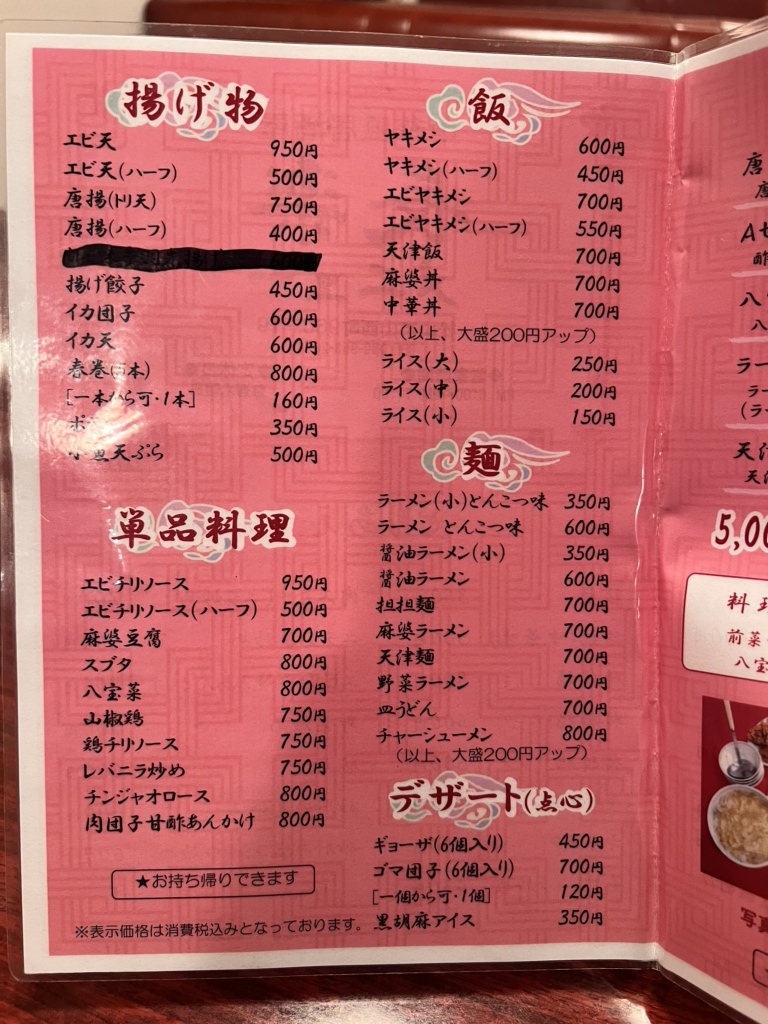 揚げ物
エビ天 950円
エビ天(ハーフ) 500円
唐揚(トリ天) 750円
唐揚(ハーフ) 400円
揚げ餃子 450円
イカ団子 600円
イカ天 600円
春巻(5本) 800円
[一本から可・1本] 160円
350円
小魚天ぷら 500円
単品料理
エビチリソース 950円
エビチリソース(ハーフ) 500円
麻婆豆腐 700円
スブタ 800円
八宝菜 800円
山椒鶏 750円
鶏チリソース 750円
レバニラ炒め 750円
チンジャオロース 800円
肉団子甘酢あんかけ 800円
★お持ち帰りできます
※表示価格は消費税込みとなっております。
飯
ヤキメシ 600円
ヤキメシ(ハーフ) 450円
エビヤキメシ 700円
エビヤキメシ(ハーフ) 550円
天津飯 700円
麻婆丼 700円
中華丼 700円
(以上、大盛200円アップ)
ライス(大) 250円
ライス(中) 200円
ライス(小) 150円
麺
ラーメン(小)とんこつ味 350円
ラーメン とんこつ味 600円
醤油ラーメン(小) 350円
醤油ラーメン 600円
担担麺 700円
麻婆ラーメン 700円
天津麺 700円
野菜ラーメン 700円
皿うどん 700円
チャーシューメン 800円
(以上、大盛200円アップ)
デザート(点心)
ギョーザ(6個入り) 450円
ゴマ団子(6個入り) 700円
[一個から可・1個] 120円
黒胡麻アイス 350円
唐
A
八
ラー
ラー
(ラー
天
5,00
料理
前菜
八宝
写真